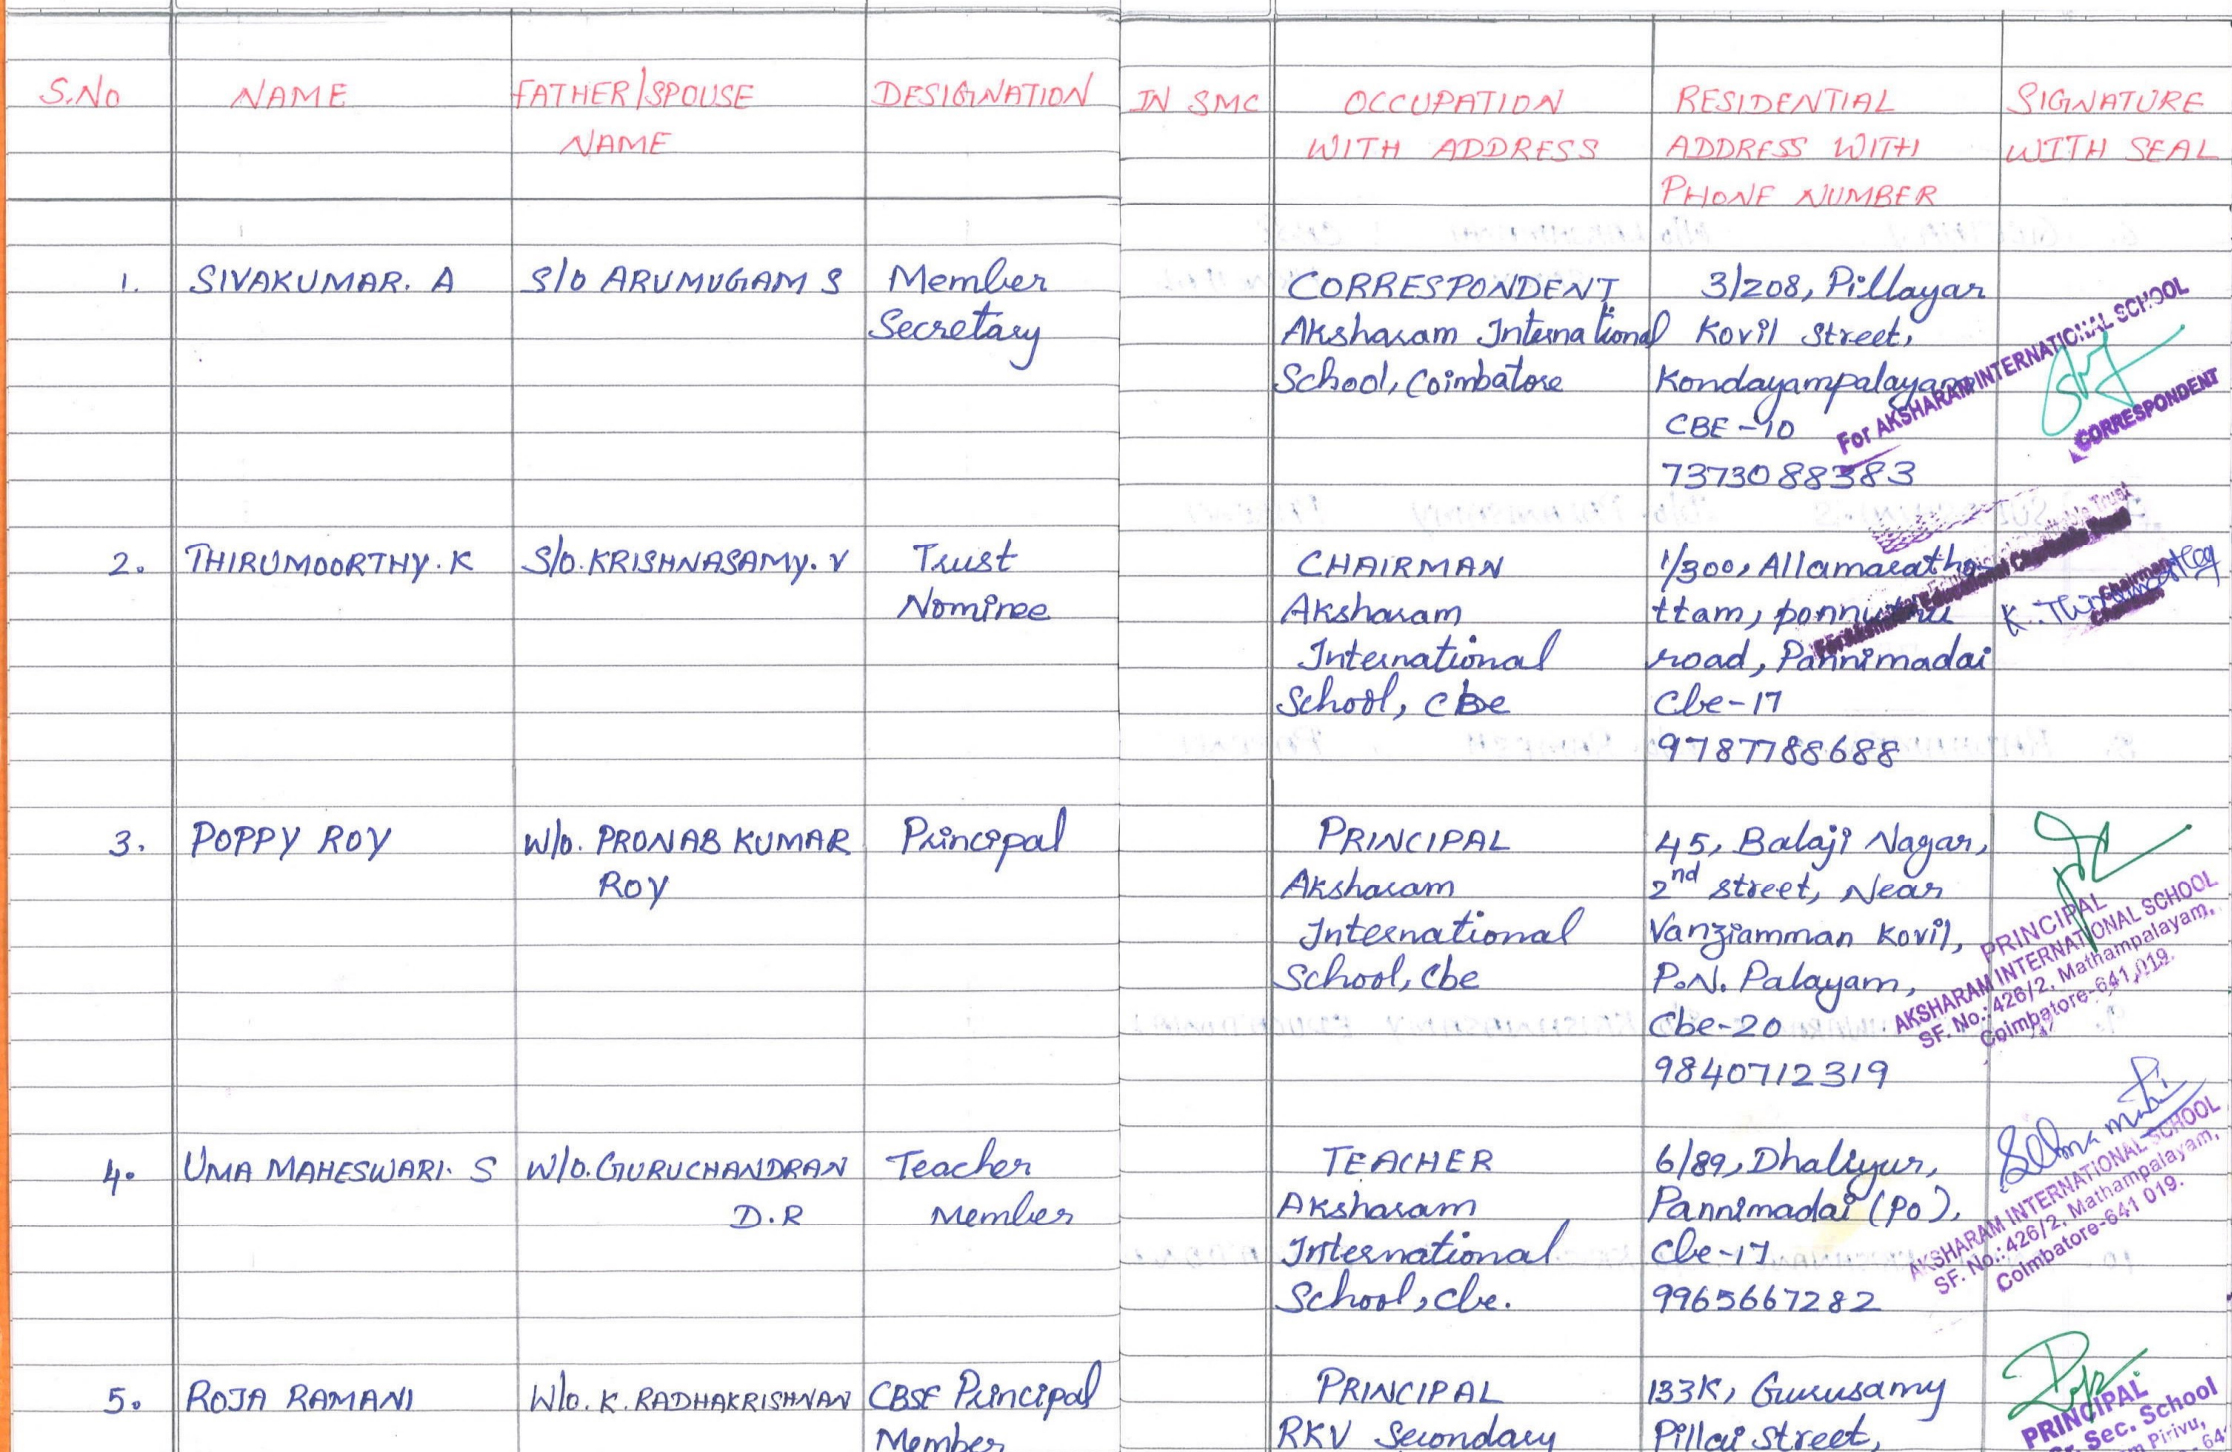 S.No NAME FATHER/SPOUSE NAME DESIGNATION IN SMC OCCUPATION WITH ADDRESS RESIDENTIAL ADDRESS WITH PHONE NUMBER SIGNATURE WITH SEAL
1. SIVAKUMAR. A S/O ARUMUGAM S Member
Secretary
CORRESPONDENT
Aksharam International
School, Coimbatore
3/208, Pillayar
Kovil Street,
Kondayampalayam
CBE-10
7373088383
For AKSHARAM INTERNATIONAL SCHOOL
CORRESPONDENT
2. THIRUMOORTHY. K S/O. KRISHNASAMY. V Trust
Nominee
CHAIRMAN
Aksharam
International
School, CBe
1/300, Allamaratho
ttam,
road, Pannimadai
Cbe-17
9787788688
Chairman
3. POPPY ROY W/O. PRONAB KUMAR
ROY
Principal
PRINCIPAL
Aksharam
International
School, Cbe
45, Balaji Nagar,
2nd street, Near
Vanziamman Kovil,
P.N. Palayam,
Cbe-20
9840712319
PRINCIPAL
AKSHARAM INTERNATIONAL SCHOOL
SF. No.: 426/2, Mathampalayam,
Coimbatore-641 019.
4. UMA MAHESWARI. S W/O. GURUCHANDRAN
D.R
Teacher
Member
TEACHER
Aksharam
International
School, Cbe.
6/89, Dhaliyur,
Pannimadai (PO),
Cbe-17
9965667282
AKSHARAM INTERNATIONAL SCHOOL
SF. No.: 426/2, Mathampalayam,
Coimbatore-641 019.
5. ROJA RAMANI W/O. K. RADHAKRISHNAN CBSE Principal
Member
PRINCIPAL
RKV Secondary
133K, Gurusamy
Pillai Street,
PRINCIPAL
Sec. School
Pirivu,